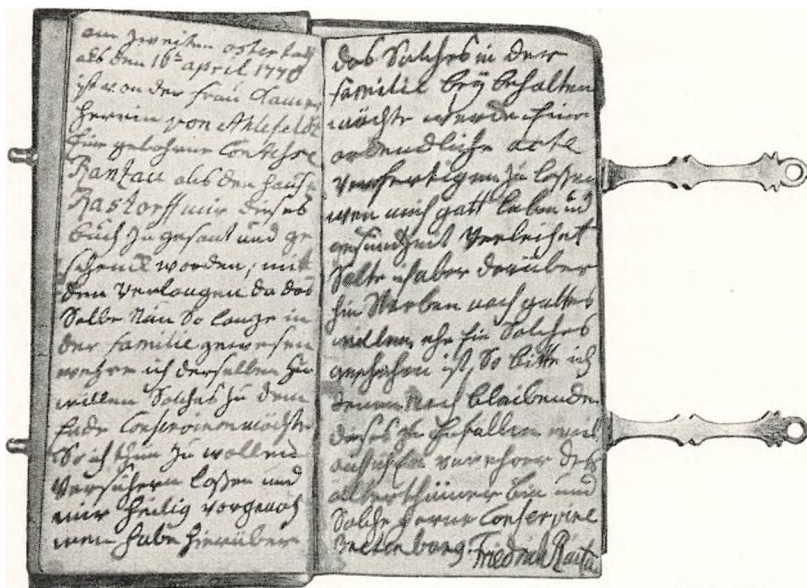 am zweiten ostertach
als den 16ten april 1770
ist von der Frau Cammer
herrin von Ahlefeldt
für gebohrne Contesse
Rantzau aus den Hause
Rastorff mir dieses
buch zu gesant und ge
schenckt worden, mit
dem Verlangen da das
Selbe Nun So lange in
der familie gewesen
ich derselben zu
willen Solches zu dem
Ende Conserviren möchte
So ich thun zu wollen
Versichern laßen und
mir heilig vorgenoh
men habe hierüber
das Solches in der
familie bey behalten
möchte werde hier
ordendliche acte
verfertigen zu laßen
wen mich gott leben und
gesundheit Verleihet
Solte ich aber darüber
hin Sterben nach gottes
willen, ehe Solches
geschehen ist, So bitte ich
denen Nach bleibenden
dieses zu gefallen weil
ein verehrer der
alterthümer bin und
Solche gerne Conservire
Breitenburg. Friedrich Rantzau